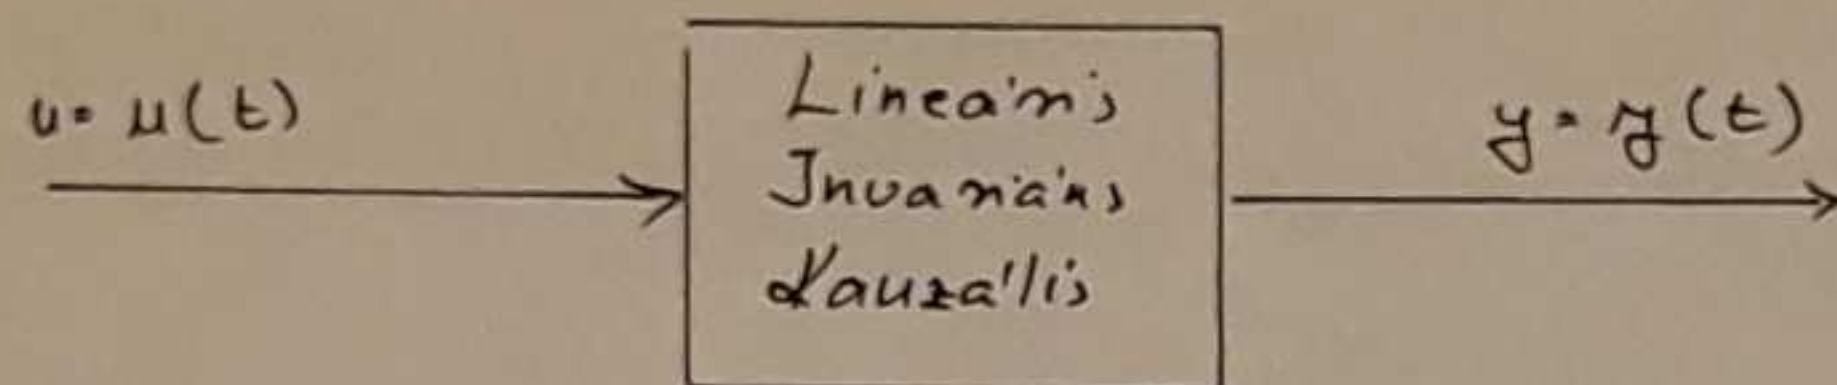 u = u(t)
Lineáris
Invariáns
Kauzális
y = y(t)